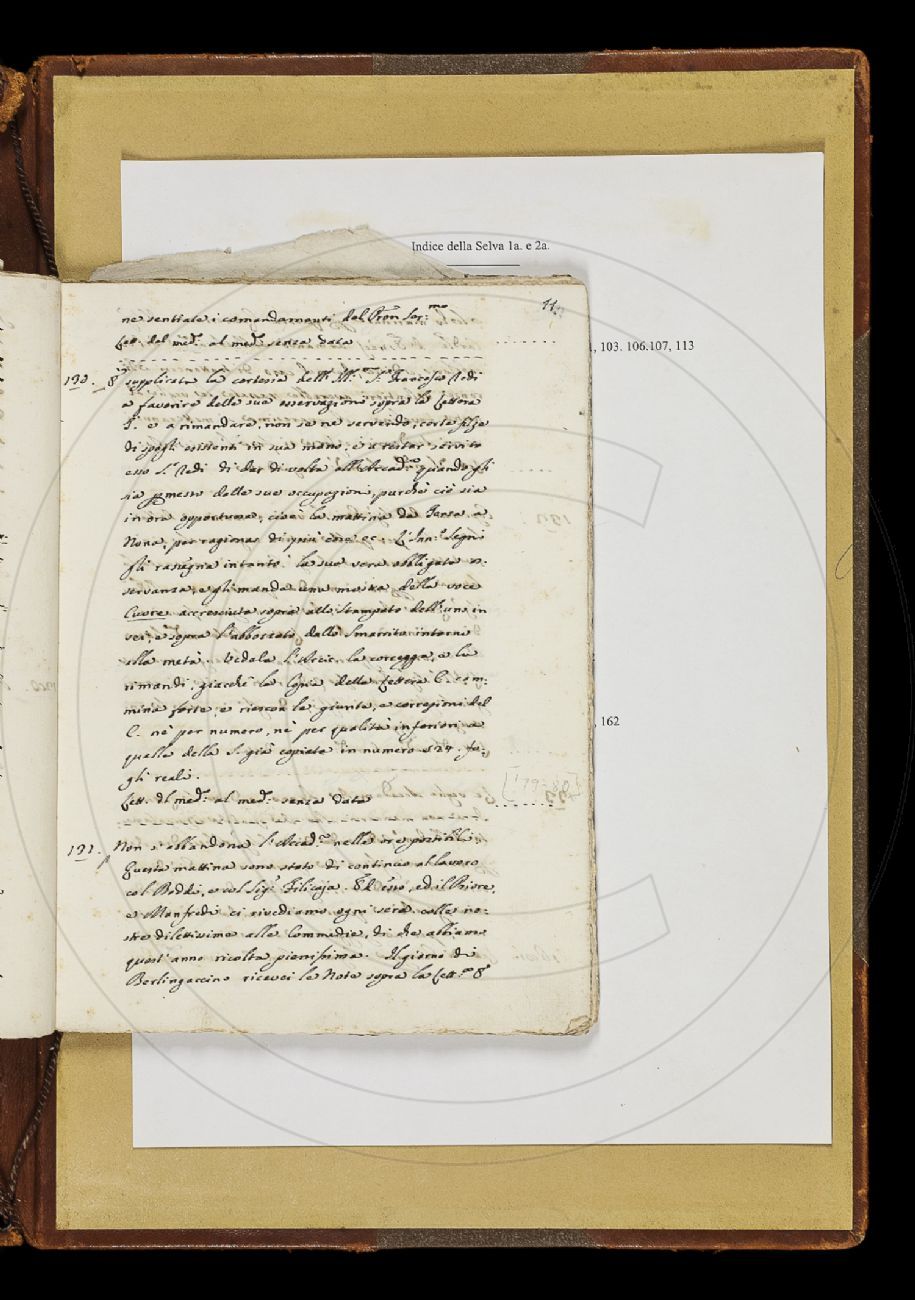 Indice della Selva 1a. e 2a.
11
ne sentiate i comandamenti del Pron Ser.mo
Lett. del med.º al med.º senza data
, 103. 106.107, 113
190. È supplicata la cortesia dell' Ill.mo S.r Francesco Redi
a favorire delle sue osservazioni sopra la Lettera
I. e a rimandare, non se ne servendo, certe filze
di spogli esistenti in sua mano; e a restar servito
esso S.r Redi di dar di volta all' Accad.a quando gli
sia pmesso dalle sue occupazioni, purchè ciò sia
in ora opportuna, cioè la mattina da Terza a
Nona, per ragionar di più cose ec. L' Inn.º Segni
gli rassegna intanto la sua vera obbligata os:
servanza, e gli manda una mostra della voce
Cuore accresciuta sopra allo Stampato dell' uno in
sei, e sopra l' abbozzato dallo Smarrito intorno
alla metà. Vedala l' Arcic. la corregga, e la
rimandi, giacchè la Copia della Lettera C. cam:
mina forte, e riescon le giunte, e correzioni del
C. nè per numero, nè per qualità inferiori a
quelle della S. già copiata in numero 524. fo:
gli reali.
, 162
Lett. del med.º al med.º senza data
191. Non si abbandona l' Accad.a nelle ore possibili.
Questa mattina sono stato di continuo al lavoro
col Redi, e col Sig.r Filicaja. Ed esso, ed il Priore,
e Manfredi ci rivediamo ogni sera colle no:
stre dilettissime alle Commedie, di che abbiamo
quest' anno ricolta pienissima. Il giorno di
Berlingaccino ricevei le Note sopra la Lett.a